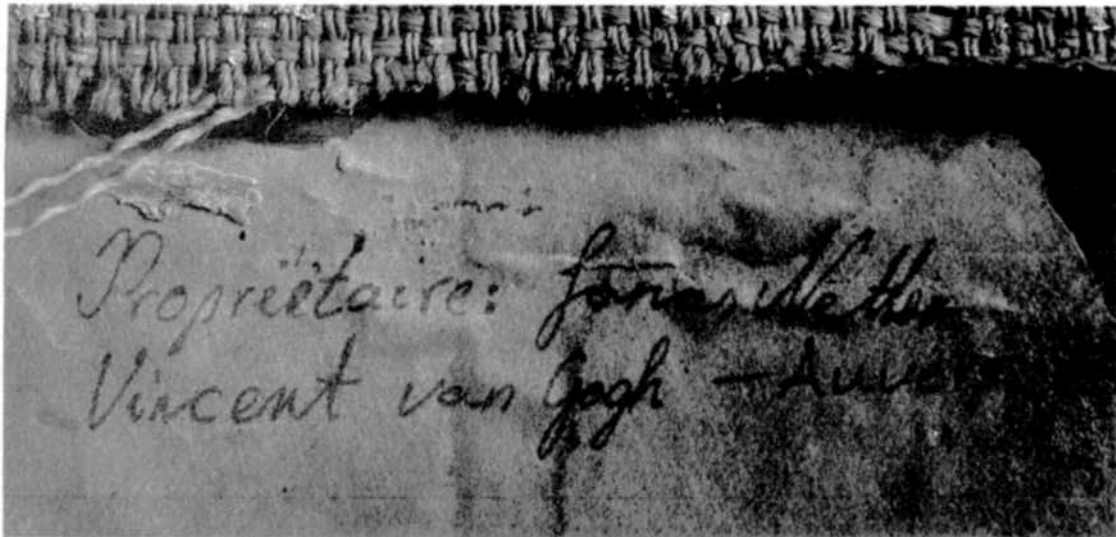 Propriétaire: Jonas Netter
Vincent van Gogh — Auvers